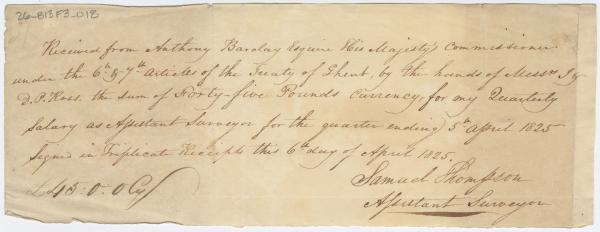 26-B13F3-018
Received from Anthony Barclay Esquire His Majesty's Commissioner
under the 6th & 7th Articles of the Treaty of Ghent, by the hands of Messrs J &
D. P. Ross. the sum of Forty-five Pounds currency, for my Quarterly
Salary as Assistant Surveyor for the quarter ending 5th April 1825
Signed in Triplicate Receipts this 6th day of April 1825.
Samuel Thompson
£45-0-0 Cy
Assistant Surveyor